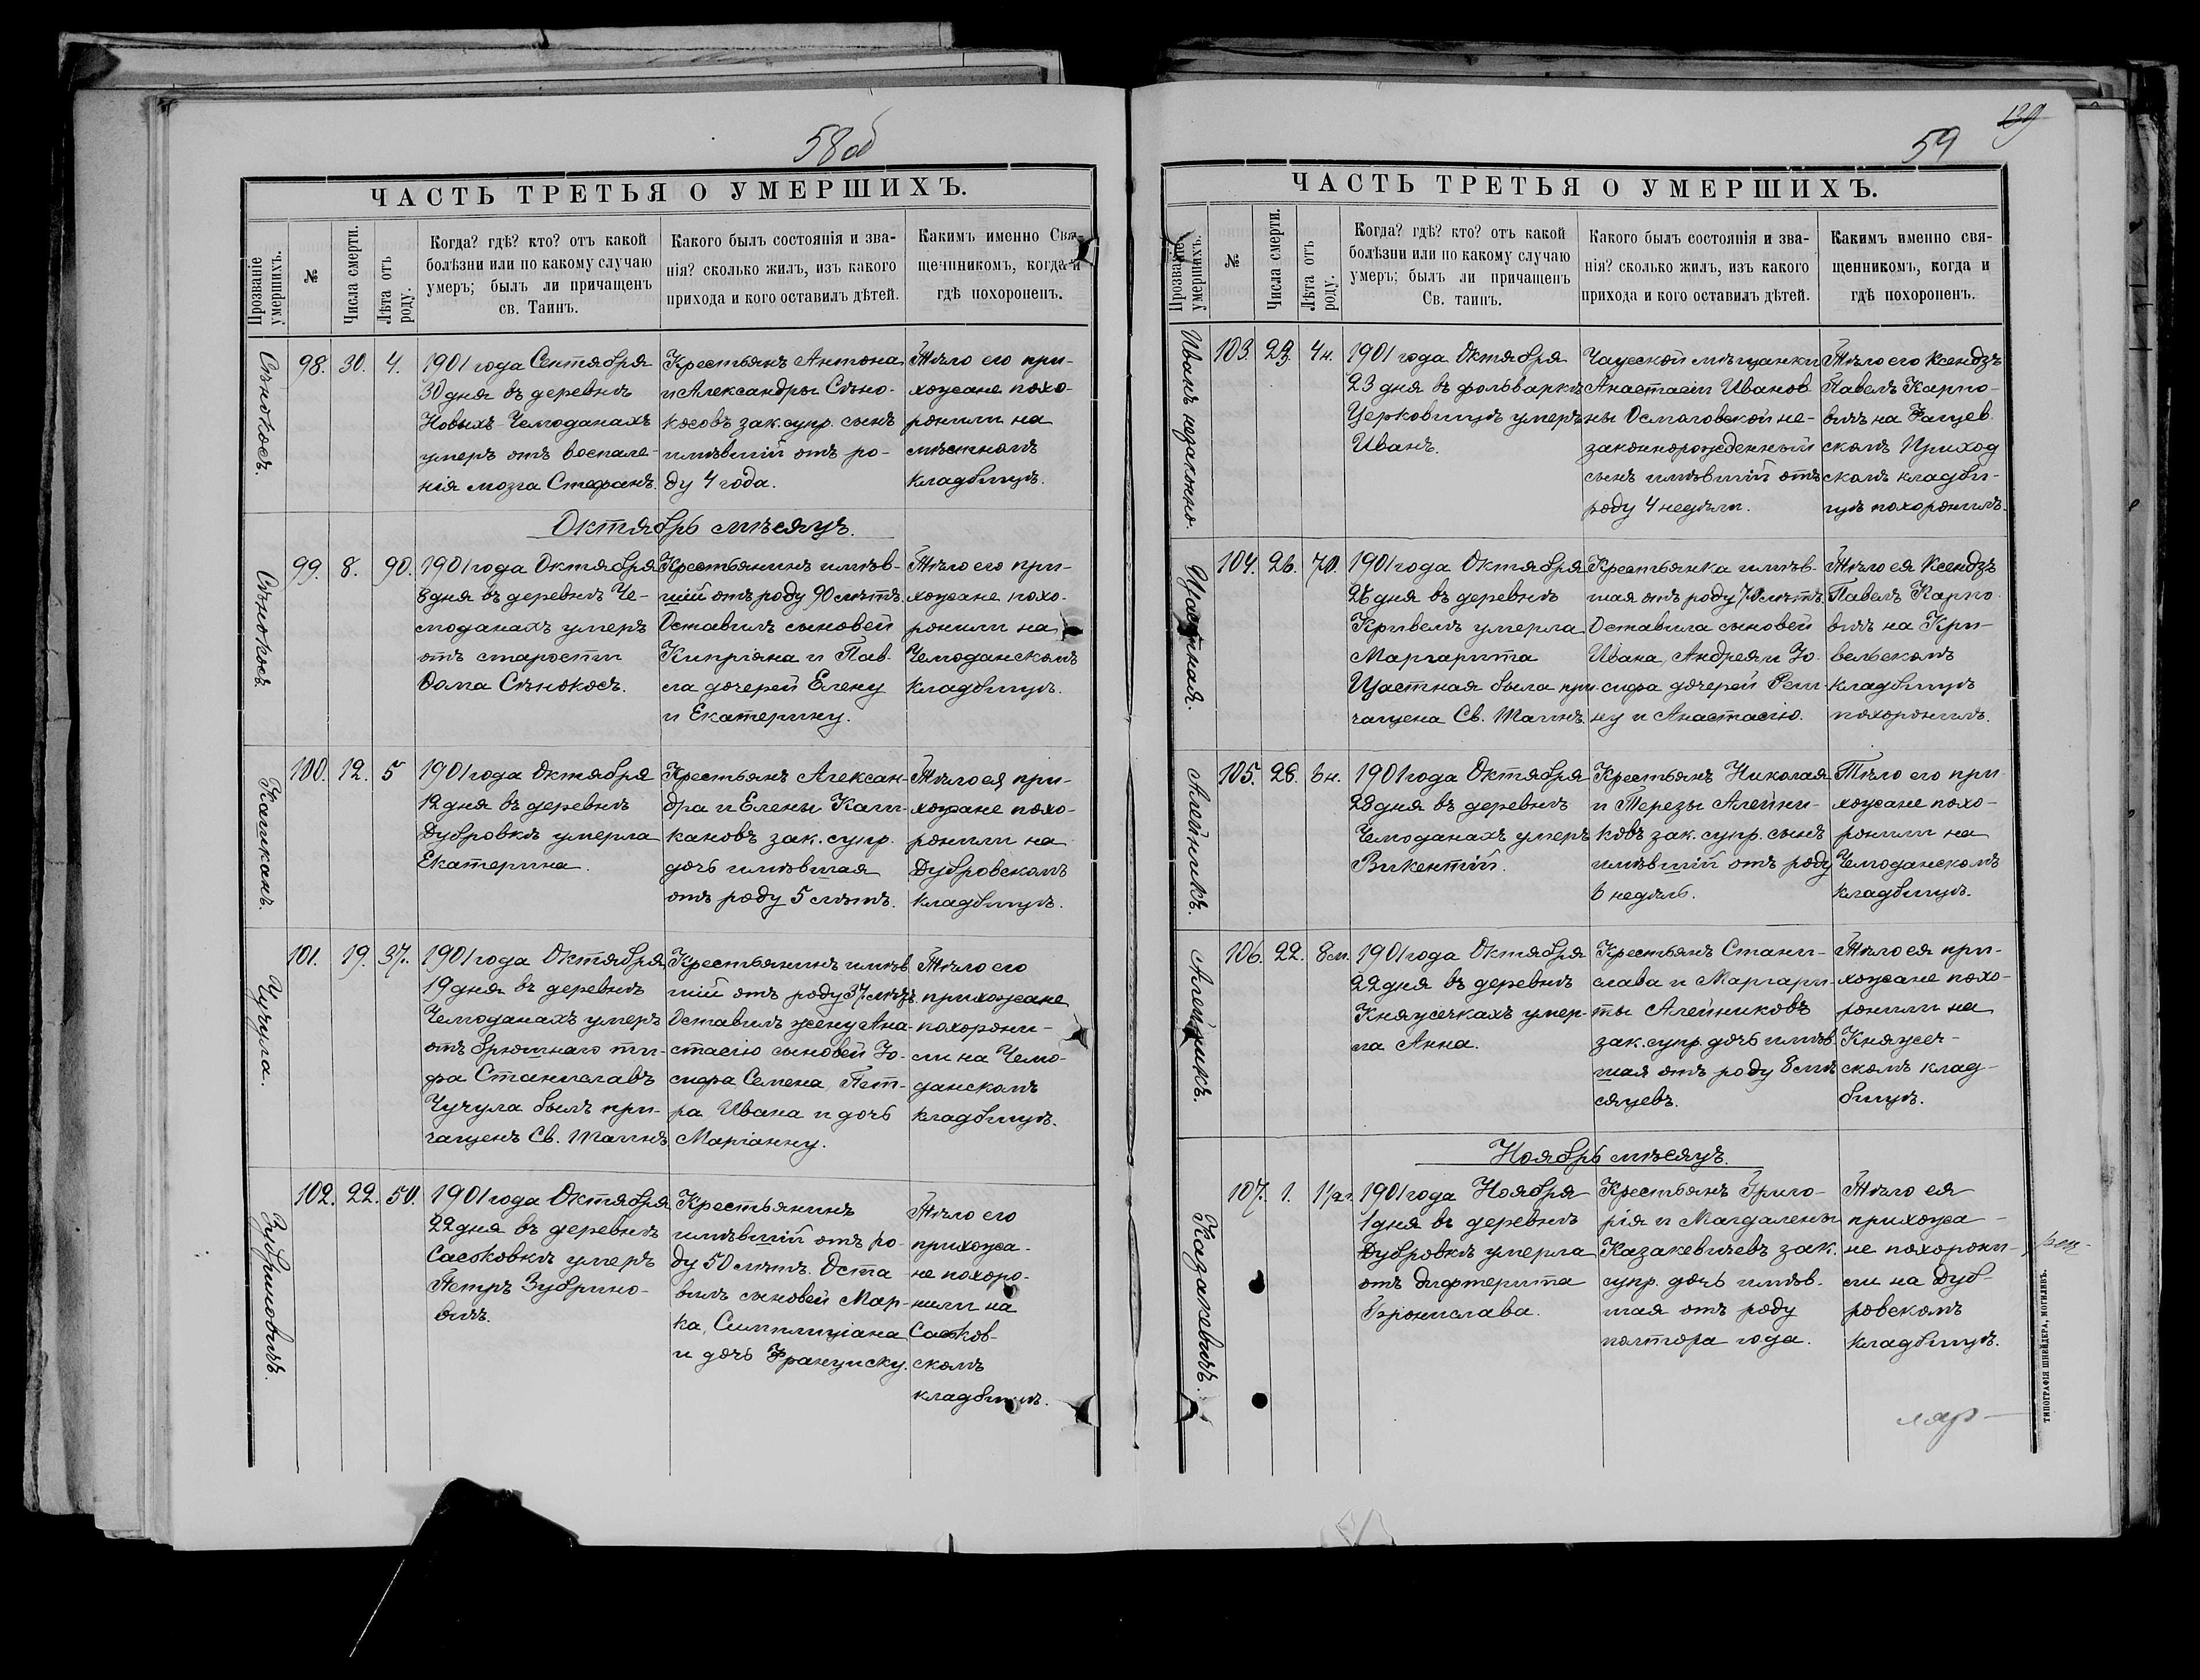 58об
ЧАСТЬ ТРЕТЬЯ О УМЕРШИХЪ.
Прозваніе умершихъ.
№
Числа смерти.
Лѣта отъ роду.
Когда? гдѣ? кто? отъ какой
болѣзни или по какому случаю
умеръ; былъ ли причащенъ
св. Таинъ.
Какого былъ состоянія и зва-
нія? сколько жилъ, изъ какого
прихода и кого оставилъ дѣтей.
Какимъ именно Свя-
щенникомъ, когда и
гдѣ похороненъ.
Сѣнокосъ.
98. 30. 4.
1901 года Сентября
30 дня въ деревнѣ
Новыхъ Чемоданахъ
умеръ отъ воспале-
нія мозга Стефанъ.
Крестьянъ Антона
и Александры Сѣно-
косовъ зак. супр. сынъ
имѣвшій отъ ро-
ду 4 года.
Тѣло его при-
хожане похо-
ронили на
мѣстномъ
кладбищѣ.
Октябрь мѣсяцъ.
Сѣнокосъ
99. 8. 90.
1901 года Октября
8 дня въ деревнѣ Че-
моданахъ умеръ
отъ старости
Ѳома Сѣнокосъ.
Крестьянинъ имѣв-
шій отъ роду 90 лѣтъ.
Оставилъ сыновей
Кипріяна и Пав-
ла дочерей Елену
и Екатерину.
Тѣло его при-
хожане похо-
ронили на
Чемоданскомъ
кладбищѣ.
Кашканъ.
100. 12. 5
1901 года Октября
12 дня въ деревнѣ
Дубровкѣ умерла
Екатерина.
Крестьянъ Алексан-
дра и Елены Каш-
кановъ зак. супр.
дочь имѣвшая
отъ роду 5 лѣтъ.
Тѣло ея при-
хожане похо-
ронили на
Дубровскомъ
кладбищѣ.
Чучула.
101. 19. 37.
1901 года Октября
19 дня въ деревнѣ
Чемоданахъ умеръ
отъ брюшнаго ти-
фа Станиславъ
Чучула былъ при-
чащенъ Св. Таинъ
Крестьянинъ имѣв
шій отъ роду 37 лѣтъ.
Оставилъ жену Ана-
стасію сыновей Іо-
сифа Семена, Пет-
ра Ивана и дочь
Маріанну.
Тѣло его
прихожане
похорони-
ли на Чемо-
данскомъ
кладбищѣ.
Зубриновичъ.
102. 22. 50.
1901 года Октября
22 дня въ деревнѣ
Сасоковкѣ умеръ
Петръ Зубрино-
вичъ.
Крестьянинъ
имѣвшій отъ ро-
ду 50 лѣтъ. Оста
вилъ сыновей Мар-
ка, Симплиціана
и дочь Франциску.
Тѣло его
прихожа-
не похоро-
нили на
скомъ
кладбищѣ.
59
139
ЧАСТЬ ТРЕТЬЯ О УМЕРШИХЪ.
Прозваніе умершихъ.
№
Числа смерти.
Лѣта отъ роду.
Когда? гдѣ? кто? отъ какой
болѣзни или по какому случаю
умеръ; былъ ли причащенъ
Св. таинъ.
Какого былъ состоянія и зва-
нія? сколько жилъ, изъ какого
прихода и кого оставилъ дѣтей.
Какимъ именно свя-
щенникомъ, когда и
гдѣ похороненъ.
Иванъ незаконно.
103 23. 4 н.
1901 года Октября
23 дня въ фольваркѣ
Церковищѣ умеръ
Иванъ.
Чаусской мѣщанки
Анастасіи Иванов
ны Осмоловской не-
законнорожденный
сынъ имѣвшій отъ
роду 4 недѣли.
Тѣло его Ксендзъ
Павелъ Карпо-
вичъ на Фащев
скомъ Приход
скомъ кладби-
щѣ похоронилъ.
Щастная.
104. 26. 70.
1901 года Октября
26 дня въ деревнѣ
Кривелѣ умерла
Маргарита
Щастная была при-
чащена Св. Таинъ.
Крестьянка имѣв-
шая отъ роду 70 лѣтъ.
Оставила сыновей
Ивана, Андрея и Іо-
сифа дочерей
ну и Анастасію.
Тѣло ея Ксендзъ
Павелъ Карпо
вичъ на Кри-
вельскомъ
кладбищѣ
похоронилъ.
Алейникъ.
105. 28. 6 н.
1901 года Октября
28 дня въ деревнѣ
Чемоданахъ умеръ
Викентій.
Крестьянъ Николая
и Терезы Алейни-
ковъ зак. супр. сынъ
имѣвшій отъ роду
6 недѣль.
Тѣло его при-
хожане похо-
ронили на
Чемоданскомъ
кладбищѣ.
Алейникъ.
106. 22. 8 м.
1901 года Октября
22 дня въ деревнѣ
Княжечкахъ умер-
ла Анна.
Крестьянъ Стани-
слава и Маргари-
ты Алейниковъ
зак. супр. дочь имѣв
шая отъ роду 8 мѣ
сяцевъ.
Тѣло ея при-
хожане похо-
ронили на
Княжеч-
скомъ клад-
бищѣ.
Ноябрь мѣсяцъ.
Казакевичъ.
107. 1. 1½ г.
1901 года Ноября
1 дня въ деревнѣ
Дубровкѣ умерла
отъ дифтерита
Бронислава.
Крестьянъ Григо-
рія и Магдалены
Казакевичевъ зак.
супр. дочь имѣв-
шая отъ роду
полтора года.
Тѣло ея
прихожа-
не похорони-
ли на Дуб-
ровскомъ
кладбищѣ.
ТИПОГРАФІЯ ШНЕЙДЕРА, МОГИЛЕВЪ.